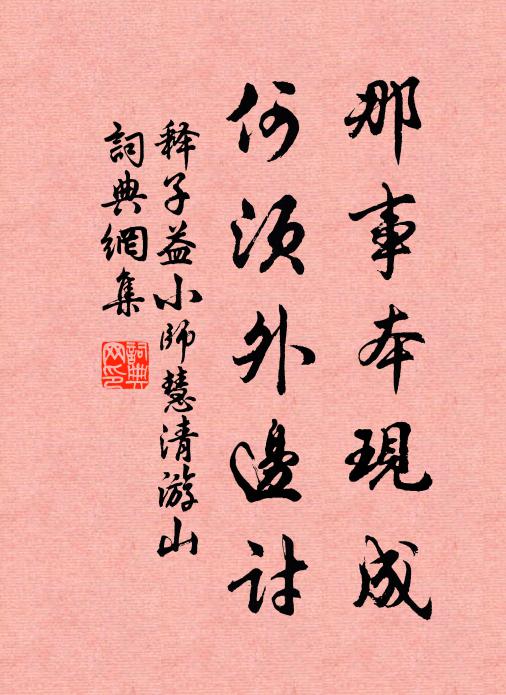 那事本現成
何須外邊討
释子益小師慧清游山
詞典網集
詞典
网印